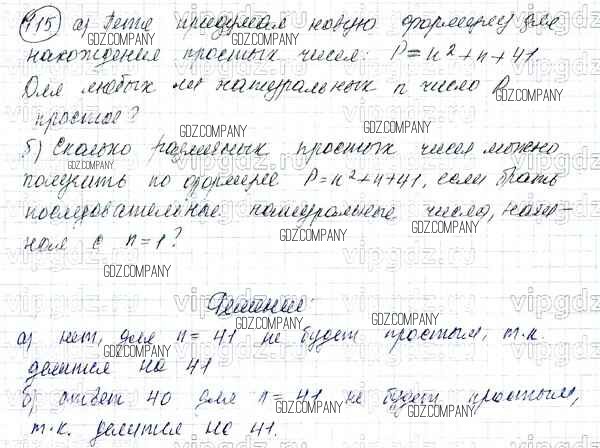 915 а) Петя придумал новую формулу для
нахождения простых чисел: P=n²+n+41
Для любых ли натуральных n число P
простое?
б) Сколько различных простых чисел можно
получить по формуле P=n²+n+41, если брать
последовательные натуральные числа, начи-
ная с n=1?
Решение:
а) нет, для n=41 не будет простым, т.к.
делится на 41
б) ответ 40 для n=41 не будет простым,
т.к. делится на 41.